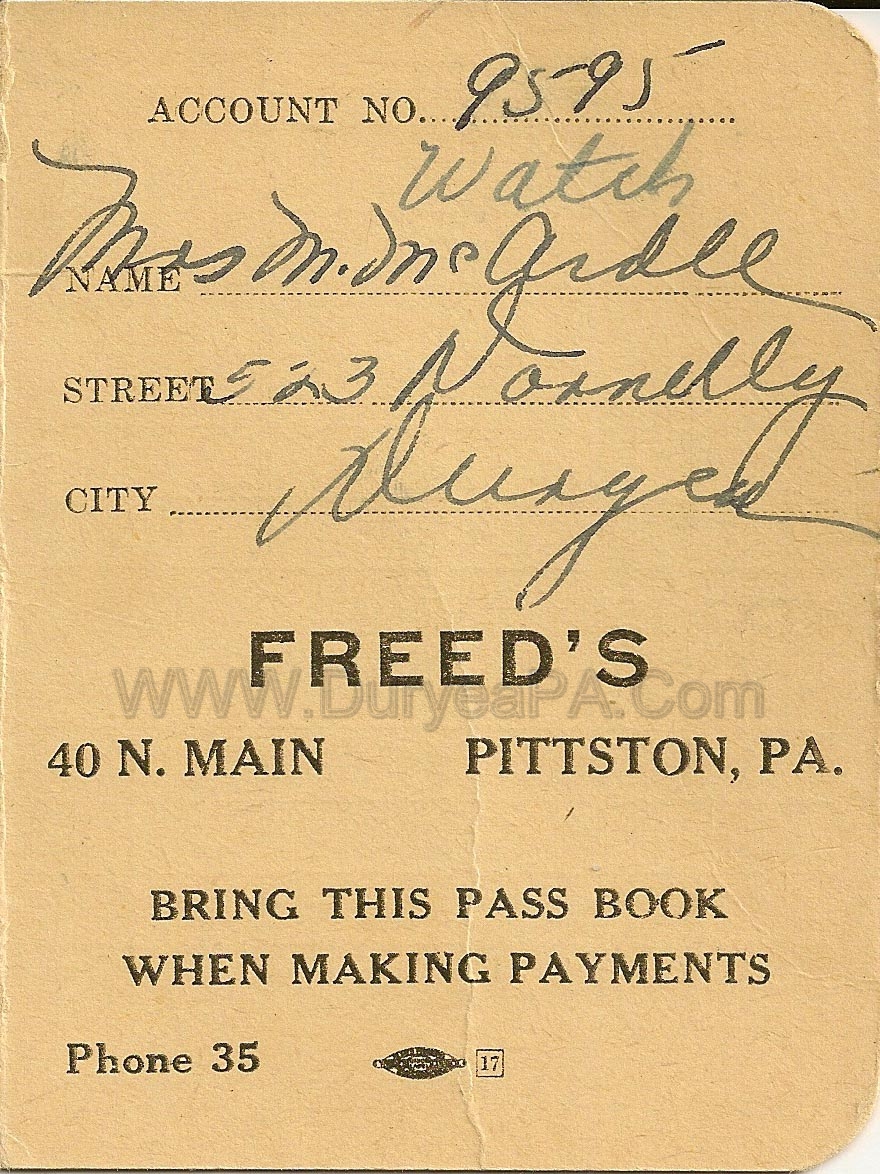 ACCOUNT NO. 9595
Watch
NAME Mrs M. McArdle
STREET 523 Donnelly
CITY Duryea
FREED'S
WWW.DuryeaPA.Com
40 N. MAIN PITTSTON, PA.
BRING THIS PASS BOOK
WHEN MAKING PAYMENTS
Phone 35 17